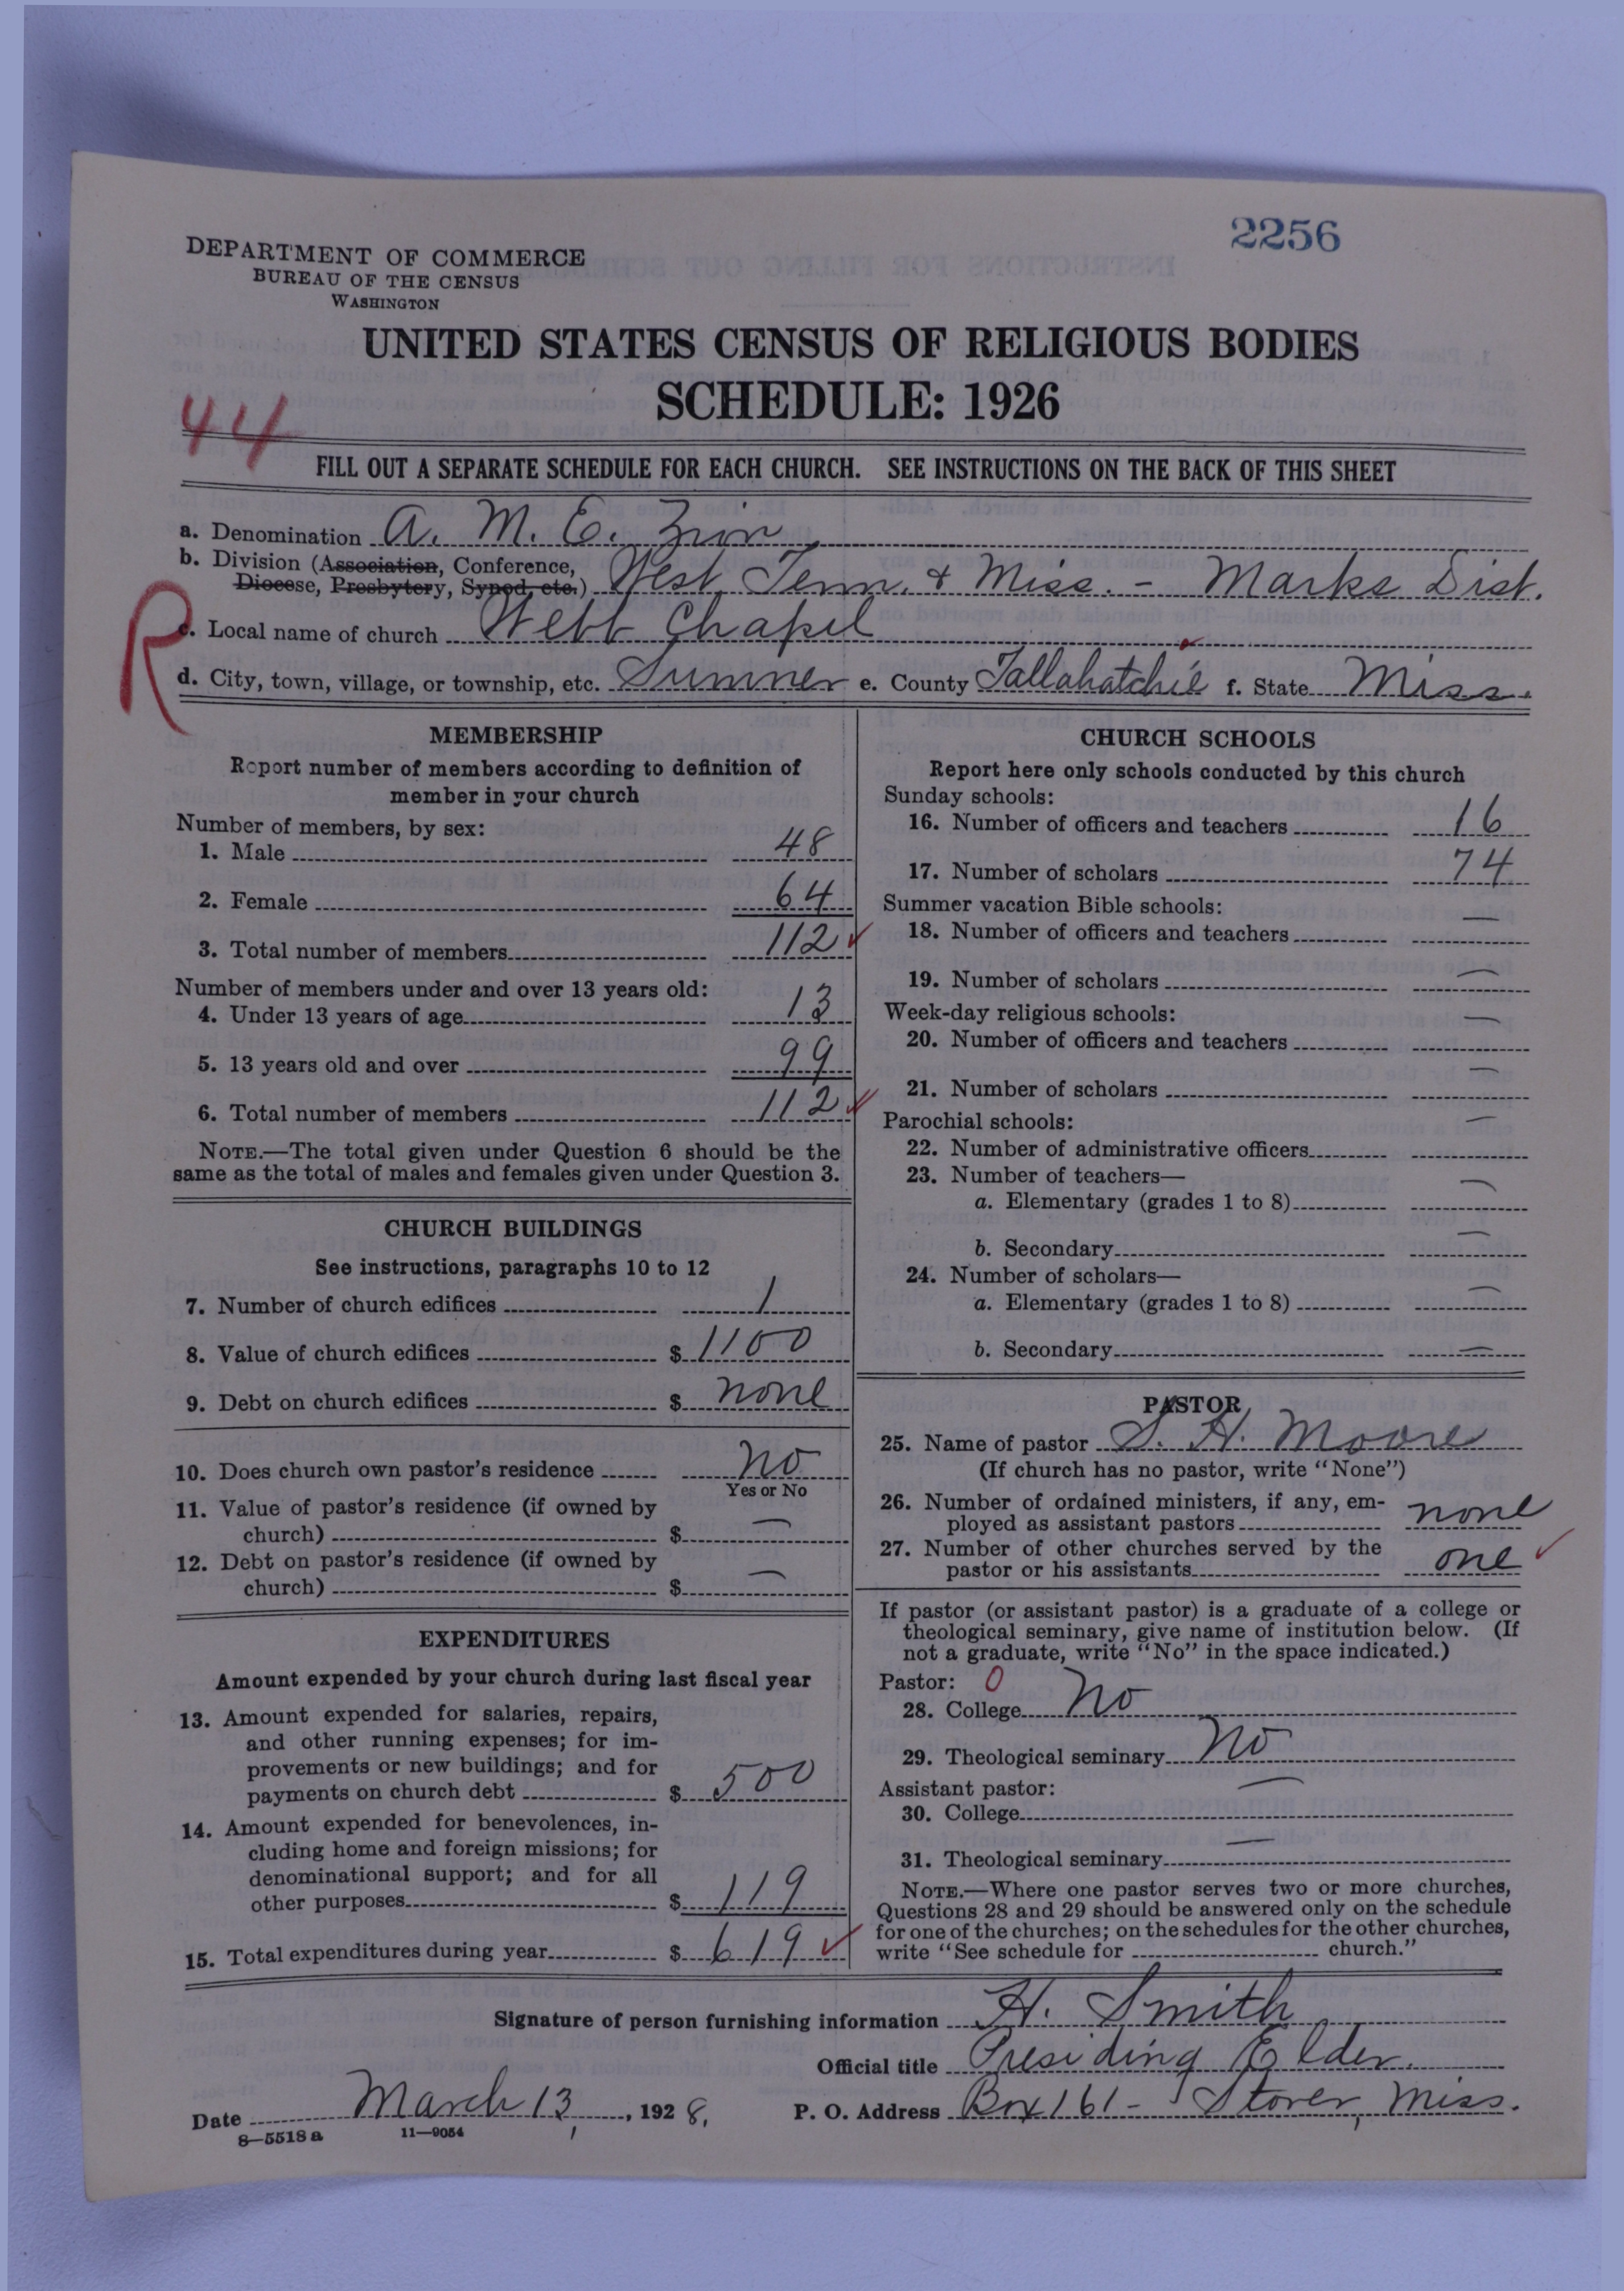 2256
DEPARTMENT OF COMMERCE
BUREAU OF THE CENSUS
WASHINGTON
UNITED STATES CENSUS OF RELIGIOUS BODIES
SCHEDULE: 1926
44
FILL OUT A SEPARATE SCHEDULE FOR EACH CHURCH. SEE INSTRUCTIONS ON THE BACK OF THIS SHEET
a. Denomination A. M. E. Zion
b. Division (Association, Conference, Diocese, Presbytery, Synod, etc.) West Tenn. & Miss. - Marks Dist.
R
c. Local name of church Webb Chapel
d. City, town, village, or township, etc. Sumner e. County Tallahatchie f. State Miss.
MEMBERSHIP
Report number of members according to definition of
member in your church
Number of members, by sex:
1. Male 48
2. Female 64
3. Total number of members 112
Number of members under and over 13 years old:
4. Under 13 years of age 13
5. 13 years old and over 99
6. Total number of members 112
NOTE.—The total given under Question 6 should be the
same as the total of males and females given under Question 3.
CHURCH BUILDINGS
See instructions, paragraphs 10 to 12
7. Number of church edifices 1
8. Value of church edifices $ 1100
9. Debt on church edifices $ none
10. Does church own pastor's residence no
Yes or No
11. Value of pastor's residence (if owned by
church) $ —
12. Debt on pastor's residence (if owned by
church) $ —
EXPENDITURES
Amount expended by your church during last fiscal year
13. Amount expended for salaries, repairs,
and other running expenses; for im-
provements or new buildings; and for
payments on church debt $ 500
14. Amount expended for benevolences, in-
cluding home and foreign missions; for
denominational support; and for all
other purposes $ 119
15. Total expenditures during year $ 619
CHURCH SCHOOLS
Report here only schools conducted by this church
Sunday schools:
16. Number of officers and teachers 16
17. Number of scholars 74
Summer vacation Bible schools:
18. Number of officers and teachers —
19. Number of scholars —
Week-day religious schools:
20. Number of officers and teachers —
21. Number of scholars —
Parochial schools:
22. Number of administrative officers —
23. Number of teachers—
a. Elementary (grades 1 to 8) —
b. Secondary —
24. Number of scholars—
a. Elementary (grades 1 to 8) —
b. Secondary —
PASTOR
25. Name of pastor S. H. Moore
(If church has no pastor, write "None")
26. Number of ordained ministers, if any, em-
ployed as assistant pastors none
27. Number of other churches served by the
pastor or his assistants one
If pastor (or assistant pastor) is a graduate of a college or
theological seminary, give name of institution below. (If
not a graduate, write "No" in the space indicated.)
Pastor: 0
28. College No
29. Theological seminary No
Assistant pastor:
30. College —
31. Theological seminary —
NOTE.—Where one pastor serves two or more churches,
Questions 28 and 29 should be answered only on the schedule
for one of the churches; on the schedules for the other churches,
write "See schedule for church."
Signature of person furnishing information H. Smith
Official title Presiding Elder.
Date March 13, 1928, P. O. Address Box 161 - Stover, Miss.
8—5518 a 11—9054